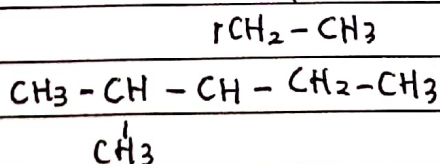 CH2 - CH3
CH3 - CH - CH - CH2 - CH3
CH3